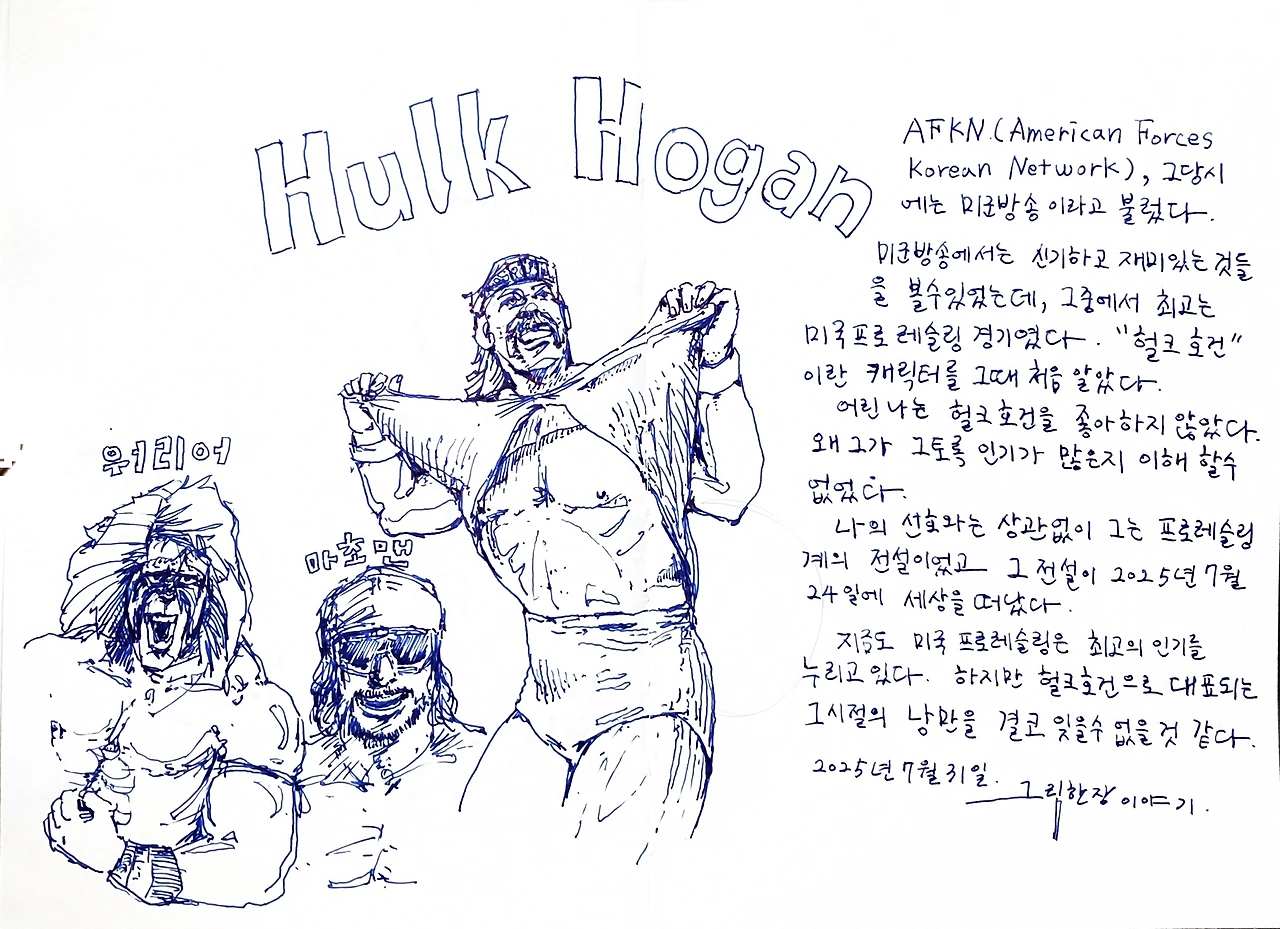 Hulk Hogan
AFKN.(American Forces
Korean Network), 그당시
에는 미군방송이라고 불렀다.
미군방송에서는 신기하고 재미있는 것들
을 볼수있었는데, 그중에서 최고는
미국프로레슬링 경기였다. "헐크호건"
이란 캐릭터를 그때 처음 알았다.
어린 나는 헐크호건을 좋아하지 않았다.
왜 그가 그토록 인기가 많은지 이해 할수
없었다.
나의 선호와는 상관없이 그는 프로레슬링
계의 전설이었고 그 전설이 2025년 7월
24일에 세상을 떠났다.
지금도 미국 프로레슬링은 최고의 인기를
누리고 있다. 하지만 헐크호건으로 대표되는
그시절의 낭만을 결코 잊을수 없을것 같다.
2025년 7월 31일.
그림한장 이야기.
워리어
마초맨